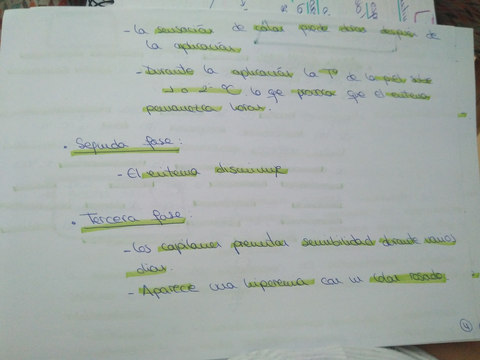 - La sensación de calor puede durar después de
la aplicación
- Durante la aplicación la Tº de la piel sube
1 o 2 ºC, lo que provoca que el eritema
permanezca horas.
• Segunda fase:
- El eritema disminuye
• Tercera fase:
- Los capilares presentan sensibilidad durante varios
días.
- Aparece una hiperemia con un color rosado.
4